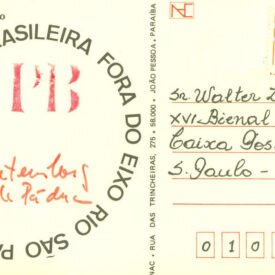 º
BRASILEIRA FORA DO EIXO RIO SÃO PA
PB
de Pádua
NAC - RUA DAS TRINCHEIRAS, 275 - 58.000 - JOÃO PESSOA, PARAÍBA
Sr. Walter Z
XVI Bienal
Caixa Pos
S. Paulo -
0 1 0